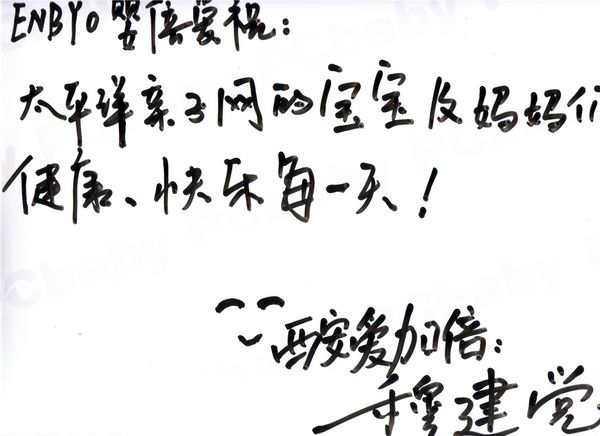 ENBYO婴倍爱祝:
太平洋亲子网的宝宝及妈妈们
健康、快乐每一天!
西安爱加倍:
建党